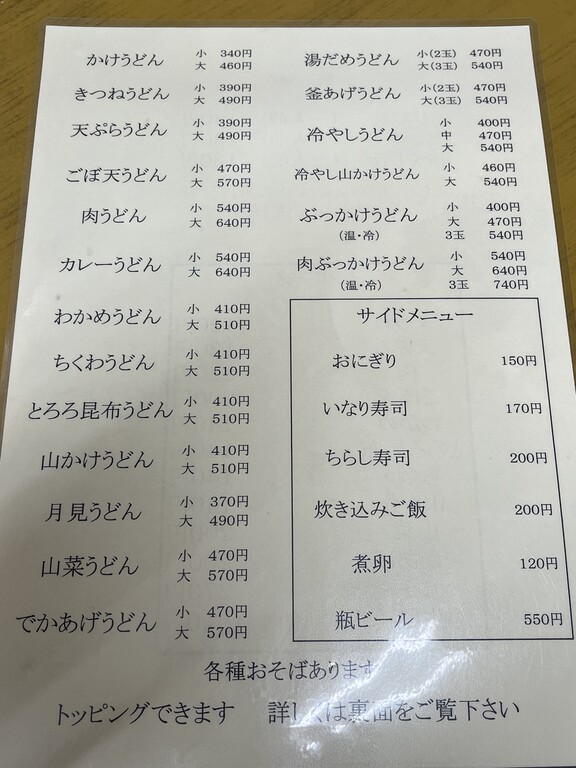 かけうどん 小 340円
大 460円
きつねうどん 小 390円
大 490円
天ぷらうどん 小 390円
大 490円
ごぼ天うどん 小 470円
大 570円
肉うどん 小 540円
大 640円
カレーうどん 小 540円
大 640円
わかめうどん 小 410円
大 510円
ちくわうどん 小 410円
大 510円
とろろ昆布うどん 小 410円
大 510円
山かけうどん 小 410円
大 510円
月見うどん 小 370円
大 490円
山菜うどん 小 470円
大 570円
でかあげうどん 小 470円
大 570円
湯だめうどん 小(2玉) 470円
大(3玉) 540円
釜あげうどん 小(2玉) 470円
大(3玉) 540円
冷やしうどん 小 400円
中 470円
大 540円
冷やし山かけうどん 小 460円
大 540円
ぶっかけうどん 小 400円
大 470円
(温・冷) 3玉 540円
肉ぶっかけうどん 小 540円
大 640円
(温・冷) 3玉 740円
サイドメニュー
おにぎり 150円
いなり寿司 170円
ちらし寿司 200円
炊き込みご飯 200円
煮卵 120円
瓶ビール 550円
各種おそばあります
トッピングできます 詳しくは裏面をご覧下さい